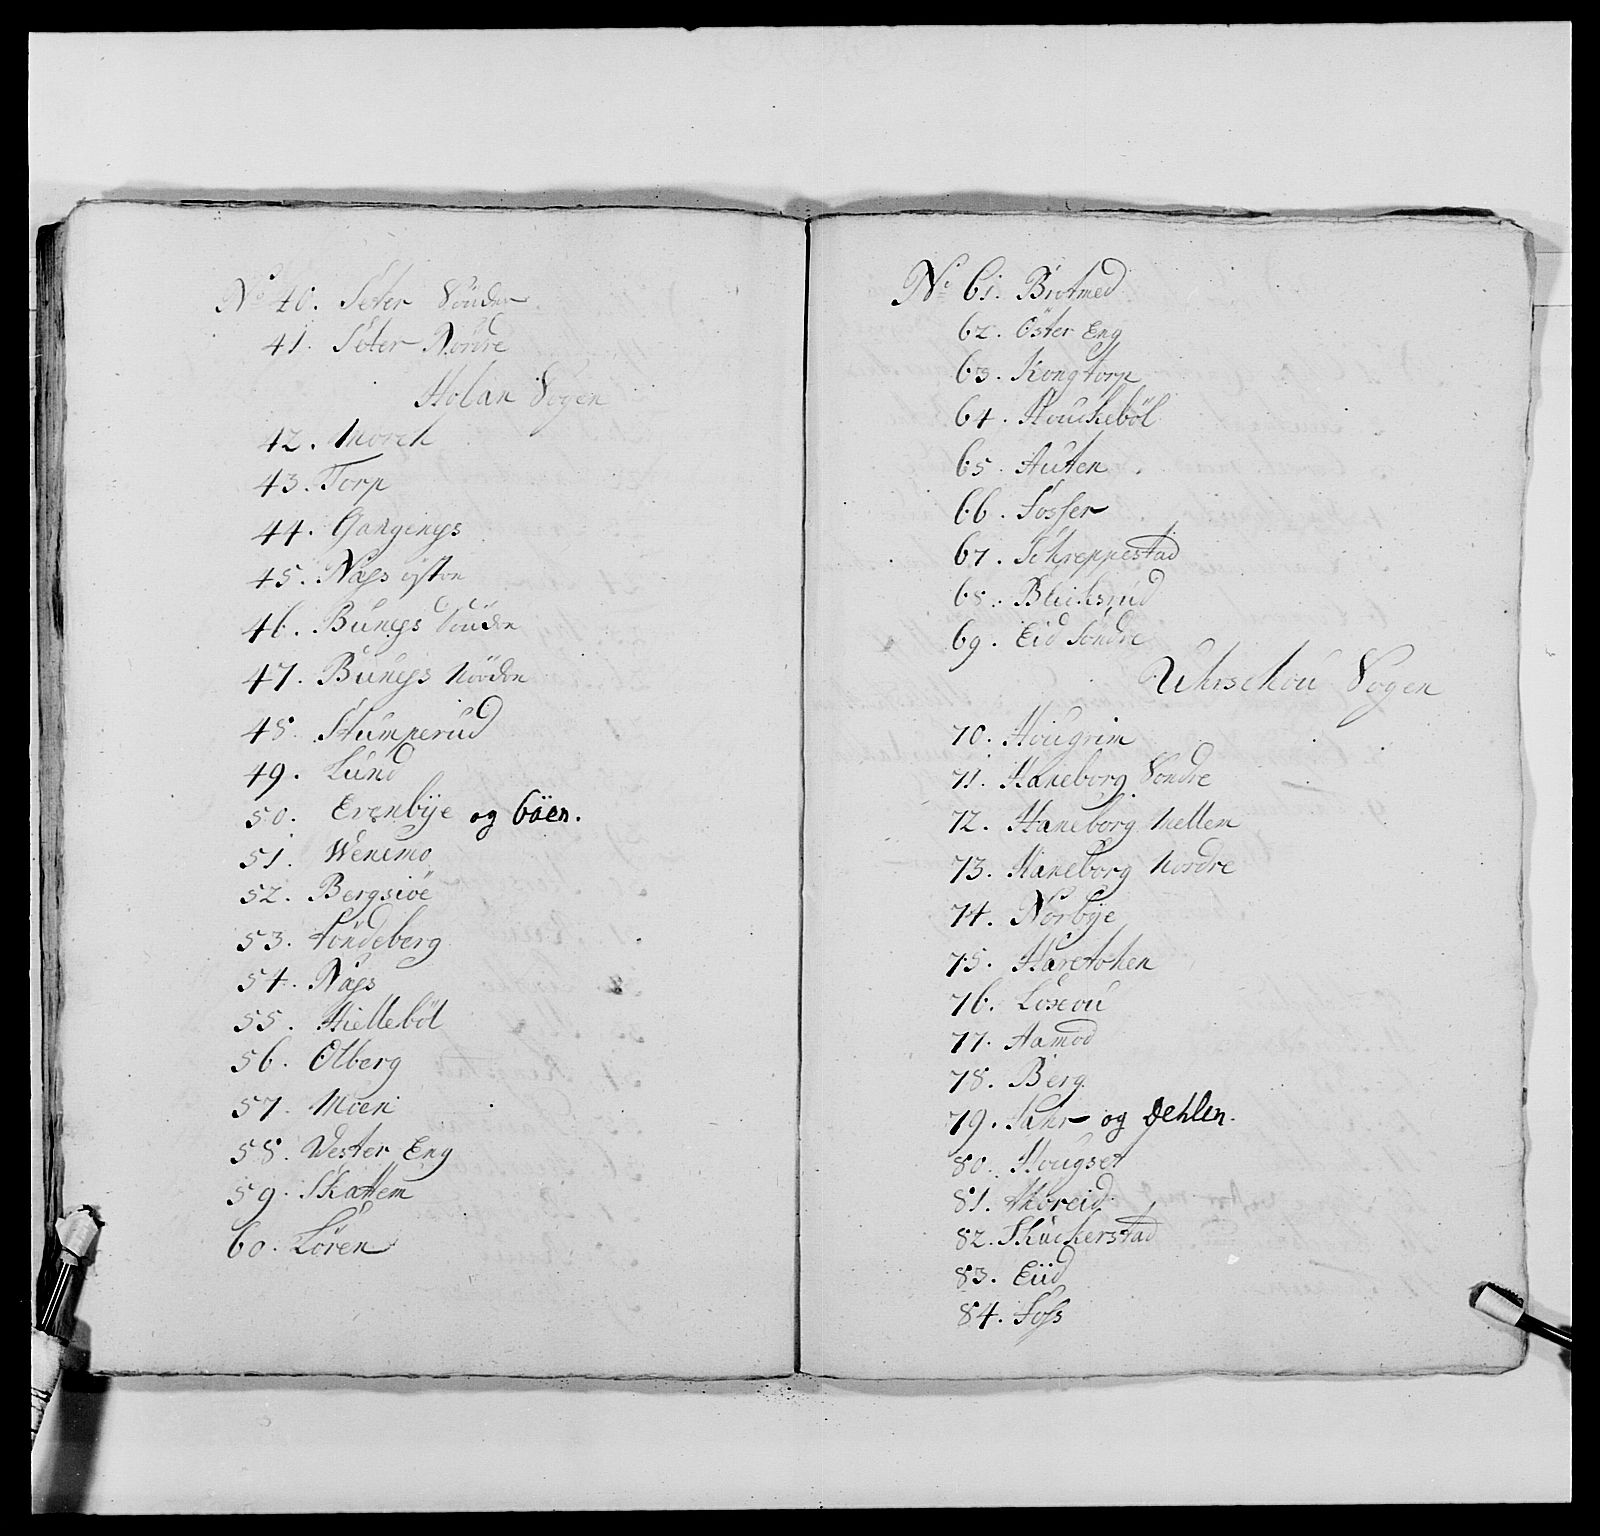 No 40. Seter Sönder
41. Seter Nordre
Holan Sogen
42. Morch
43. Torp
44. Gangenes
45. Næss østre
46. Buness Sönder
47. Buness Nörder
48. Stumperud
49. Lund
50. Evenbÿe og böen.
51. Wenemo
52. Bergsiöe
53. Töndeberg
54. Næss
55. Hielleböl
56. Olberg
57. Moen
58. Wester Eng
59. Skattem
60. Lören
No 61. Brotmed
62. Öster Eng
63. Kongtorp
64. Houcheböl
65. Huten
66. Fosser
67. Schreppestad
68. Blichsrud
69. Eid Söndre
Uhrschou Sogen
70. Hougrim
71. Haneborg Söndre
72. Haneborg Mellem
73. Haneborg Nordre
74. Norbÿe
75. Haretohen
76. Loxou
77. Aamod
78. Berg
79. Fahr og Dehlen.
80. Hougset
81. Thoreid
82. Skuckerstad
83. Eiid
84. Foss